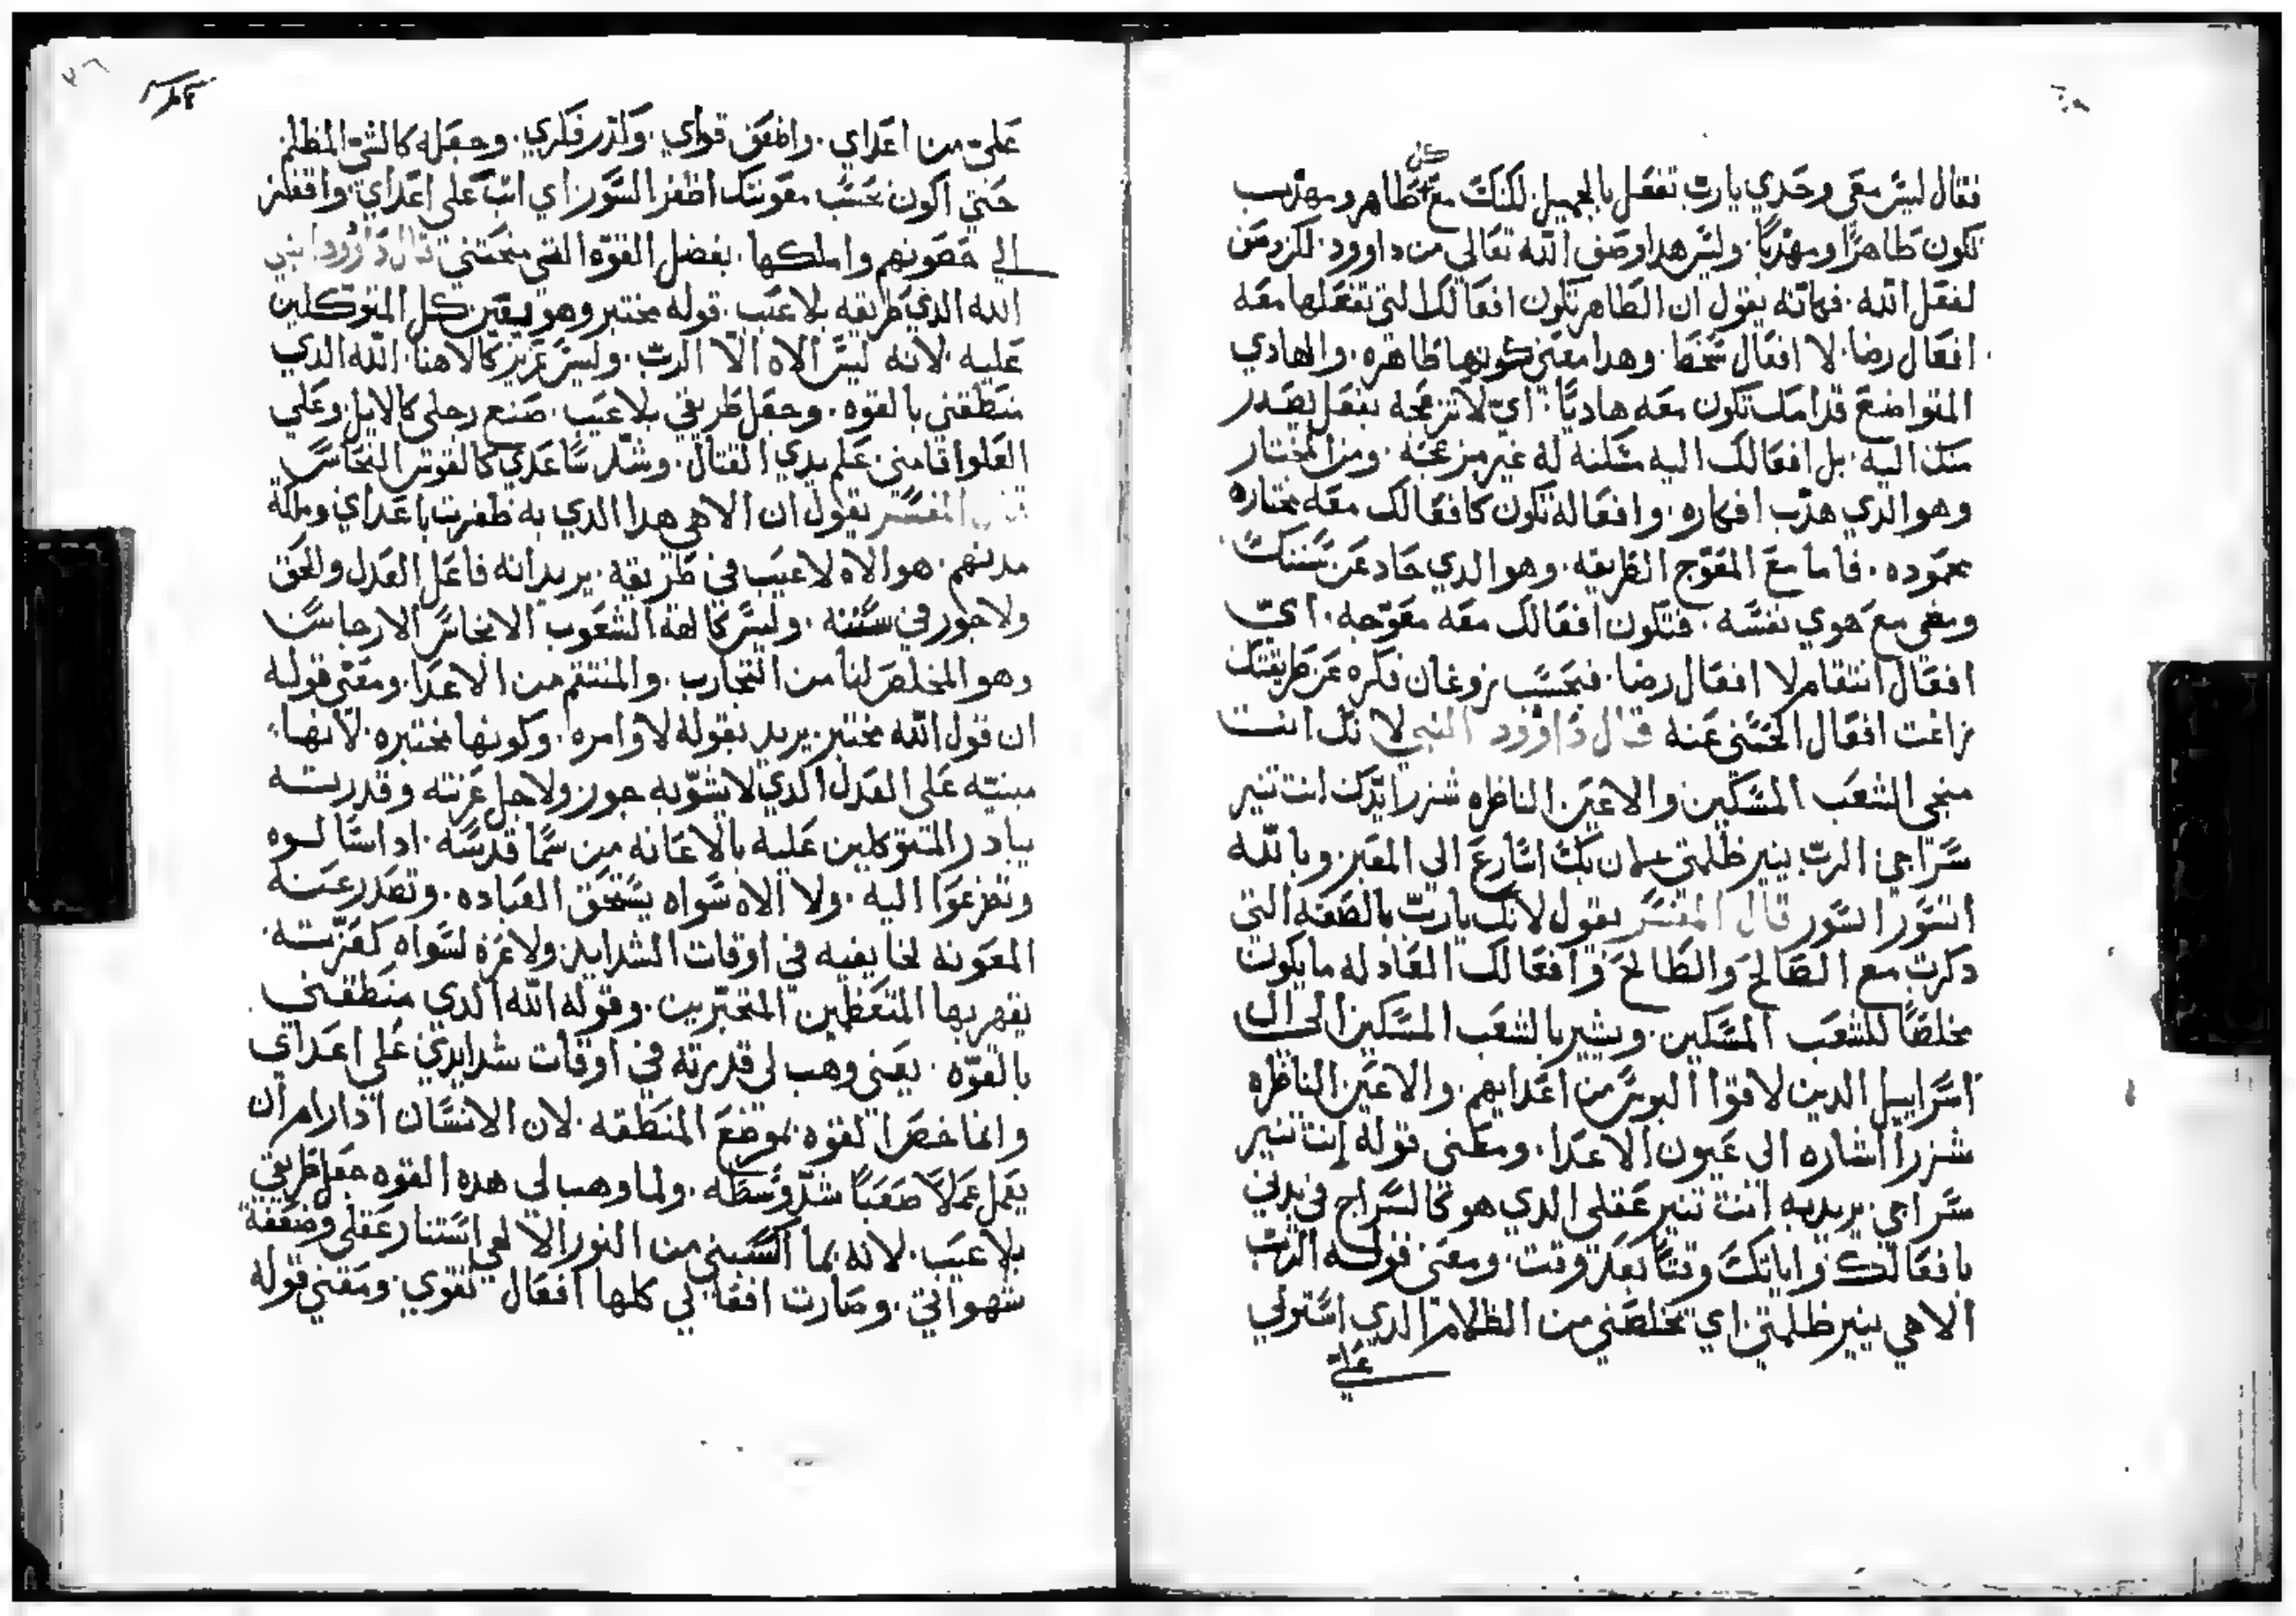 كل
فقال ليس معي وحدي يارب تفعل بالجميل لكنك مع طاهر ومهذب
تكون طاهرًا ومهذبًا. وليس هدا وصف الله تعالى من داوود. لكن من
لفعل الله. فكانه يقول ان الطاهر تكون افعالك التي تفعلها معه
افعال رضا. لا افعال سخط. وهدا معنى كونها طاهره. والهادي
المتواضع قدامك تكون معه هاديًا. اي لا تزعجه بفعل يصدر
منك اليه. بل افعالك اليه مسكنه له غير مزعجه. ومن المختار
وهو الدي هذب افكاره. وافعاله تكون كافعالك معه مختاره
محموده. فاما مع المعوّج الطريقه. وهو الدي حاد عن سننك
ومضى مع هوي نفسه. فتكون افعالك معه معوّجه. اي
افعال انتقام لا افعال رضا. فبحسب زوغان فكره عن طريقتك
زاغت افعال الحسنى عنه قال داوود النبي لانك انت
منجي الشعب المسكين والاعين الناظره شزرا تدك انت تنير
سراجي الرب ينير ظلمتي بك اسارع الي المعبر. وبالله
اتسوّر السور قال المفسر يقول لانك يارب بالصفه التي
دكرت مع الصالح والطالح وافعالك العادله ما يكون
مخلصًا للشعب المسكين. ويشير بالشعب المسكين الي ال
اسراييل الدين لاقوا البوس من اعدايهم. والاعين الناظره
شزرا اشاره الى عيون الاعدا. ومعنى قوله انت تنير
سراجي. يريد به انت تنير عقلى الدي هو كالسراج في بدني
بافعالك واياتك وقتًا بعد وقت. ومعنى قوله الرب
الاهي ينير ظلمتي. اي تخلصني من الظلام الدي استولي
علي
عليّ من اعداي. واضعف قواي. وكدر فكري. وجعله كالشي المظلم
حتي اكون بحسب معونتك اظفر السور اي اثب على اعداي واقفز
الي حصونهم واملكها. بفضل القوّه التي منحتني قال داوود النبي
الله الدي طريقه بلا عيب. قوله مختبر وهو يعين كل المتوكلين
عليه. لانه ليس الاه الا الرب. وليس عزيز كالاهنا. الله الدي
منطقني بالقوه. وجعل طريقي بلا عيب. صنع رجلي كالايل وعلي
العلو اقامني. علم يدي القتال. وشدد ساعدي كالقوس النحاس
قال المفسر يقول ان الاهي هدا الدي به ظفرت باعداي وملكة
مدنهم. هو الاه لا عيب في طريقه. يريد انه فاعل العدل والحق
ولا جور في سننه. وليس كالهة الشعوب الانجاس الارجاس
وهو المخلص لنا من التجارب. والمنتقم من الاعدا. ومعنى قوله
ان قول الله مختبر. يريد بقوله لاوامره. وكونها مختبره. لانها
مبنيّه على العدل الدي لا يشوبه جور. ولاجل عزته وقدرته
يبادر المتوكلين عليه بالاعانه من سما قدسه. ادا سالوه
وتضرعوا اليه. ولا الاه سواه يستحق العباده. وتصدر عنه
المعونه لخايفيه في اوقات الشدايد. ولا عزه لسواه كعزّته.
يقهر بها المتعظمين المتجبرين. وقوله الله الدي منطقني
بالقوّه. يعني وهب لي قدرته في اوقات شدايدي على اعداي
وانما خص القوه بموضع المنطقه. لان الانسان ادا رام ان
يعمل عملًا صعبًا شدّ وسطه. ولما وهب لي هده القوه جعل طريقي
بلا عيب. لانه بما اكسبني من النور الالهي استنار عقلي وضعفة
شهواتي. وصارت افعالي كلها افعال تقوي. ومعنى قوله